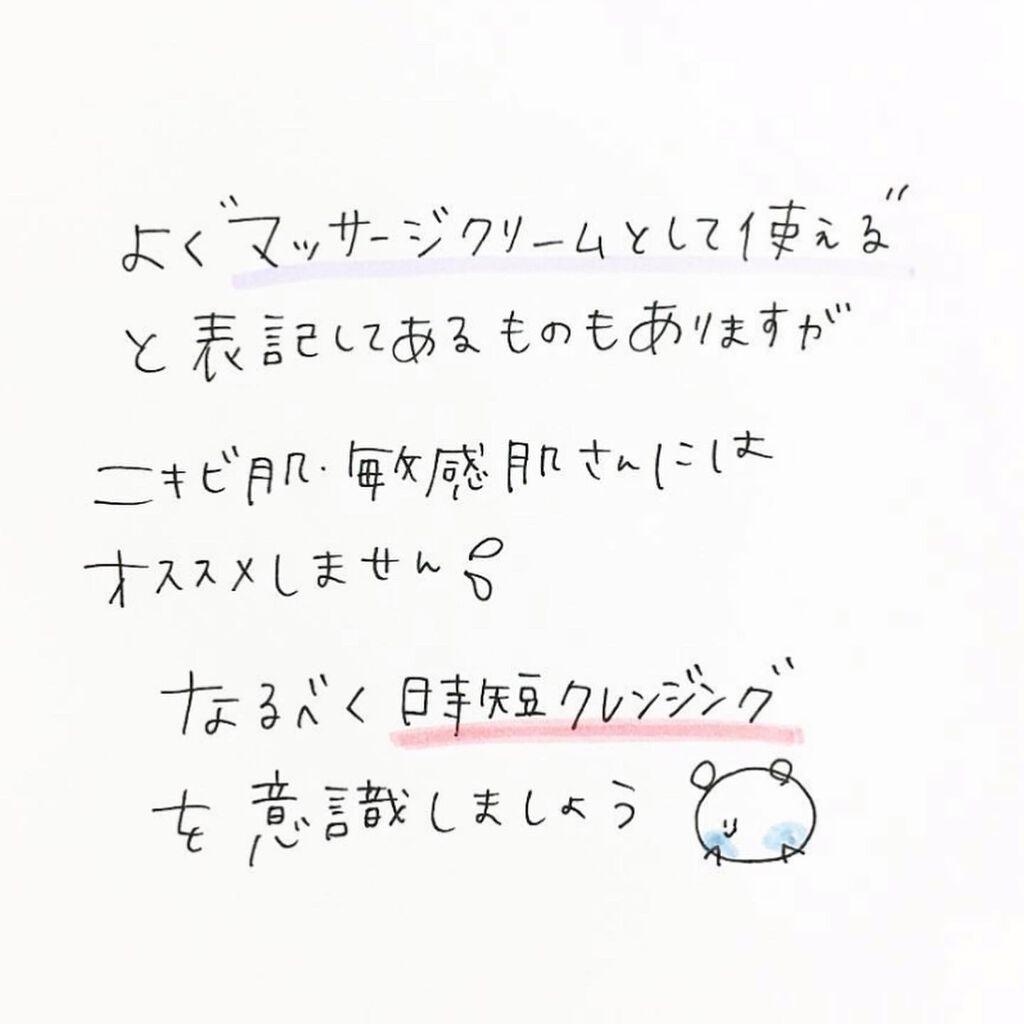 よく“マッサージクリームとして使える”
と表記してあるものもありますが
ニキビ肌・敏感肌さんには
オススメしません
なるべく時短クレンジング
を意識しましょう